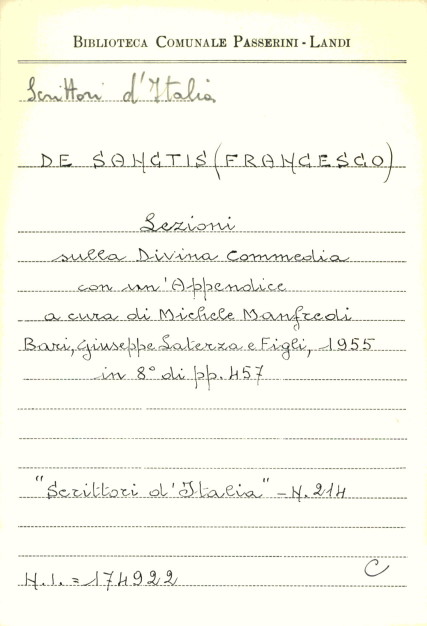 BIBLIOTECA COMUNALE PASSERINI - LANDI
Scrittori d'Italia
DE SANCTIS (FRANCESCO)
Lezioni
sulla Divina Commedia
con un'Appendice
a cura di Michele Manfredi
Bari, Giuseppe Laterza e Figli, 1955
in 8° di pp. 457
"Scrittori d'Italia" - N. 214
N.I. = 174922
C